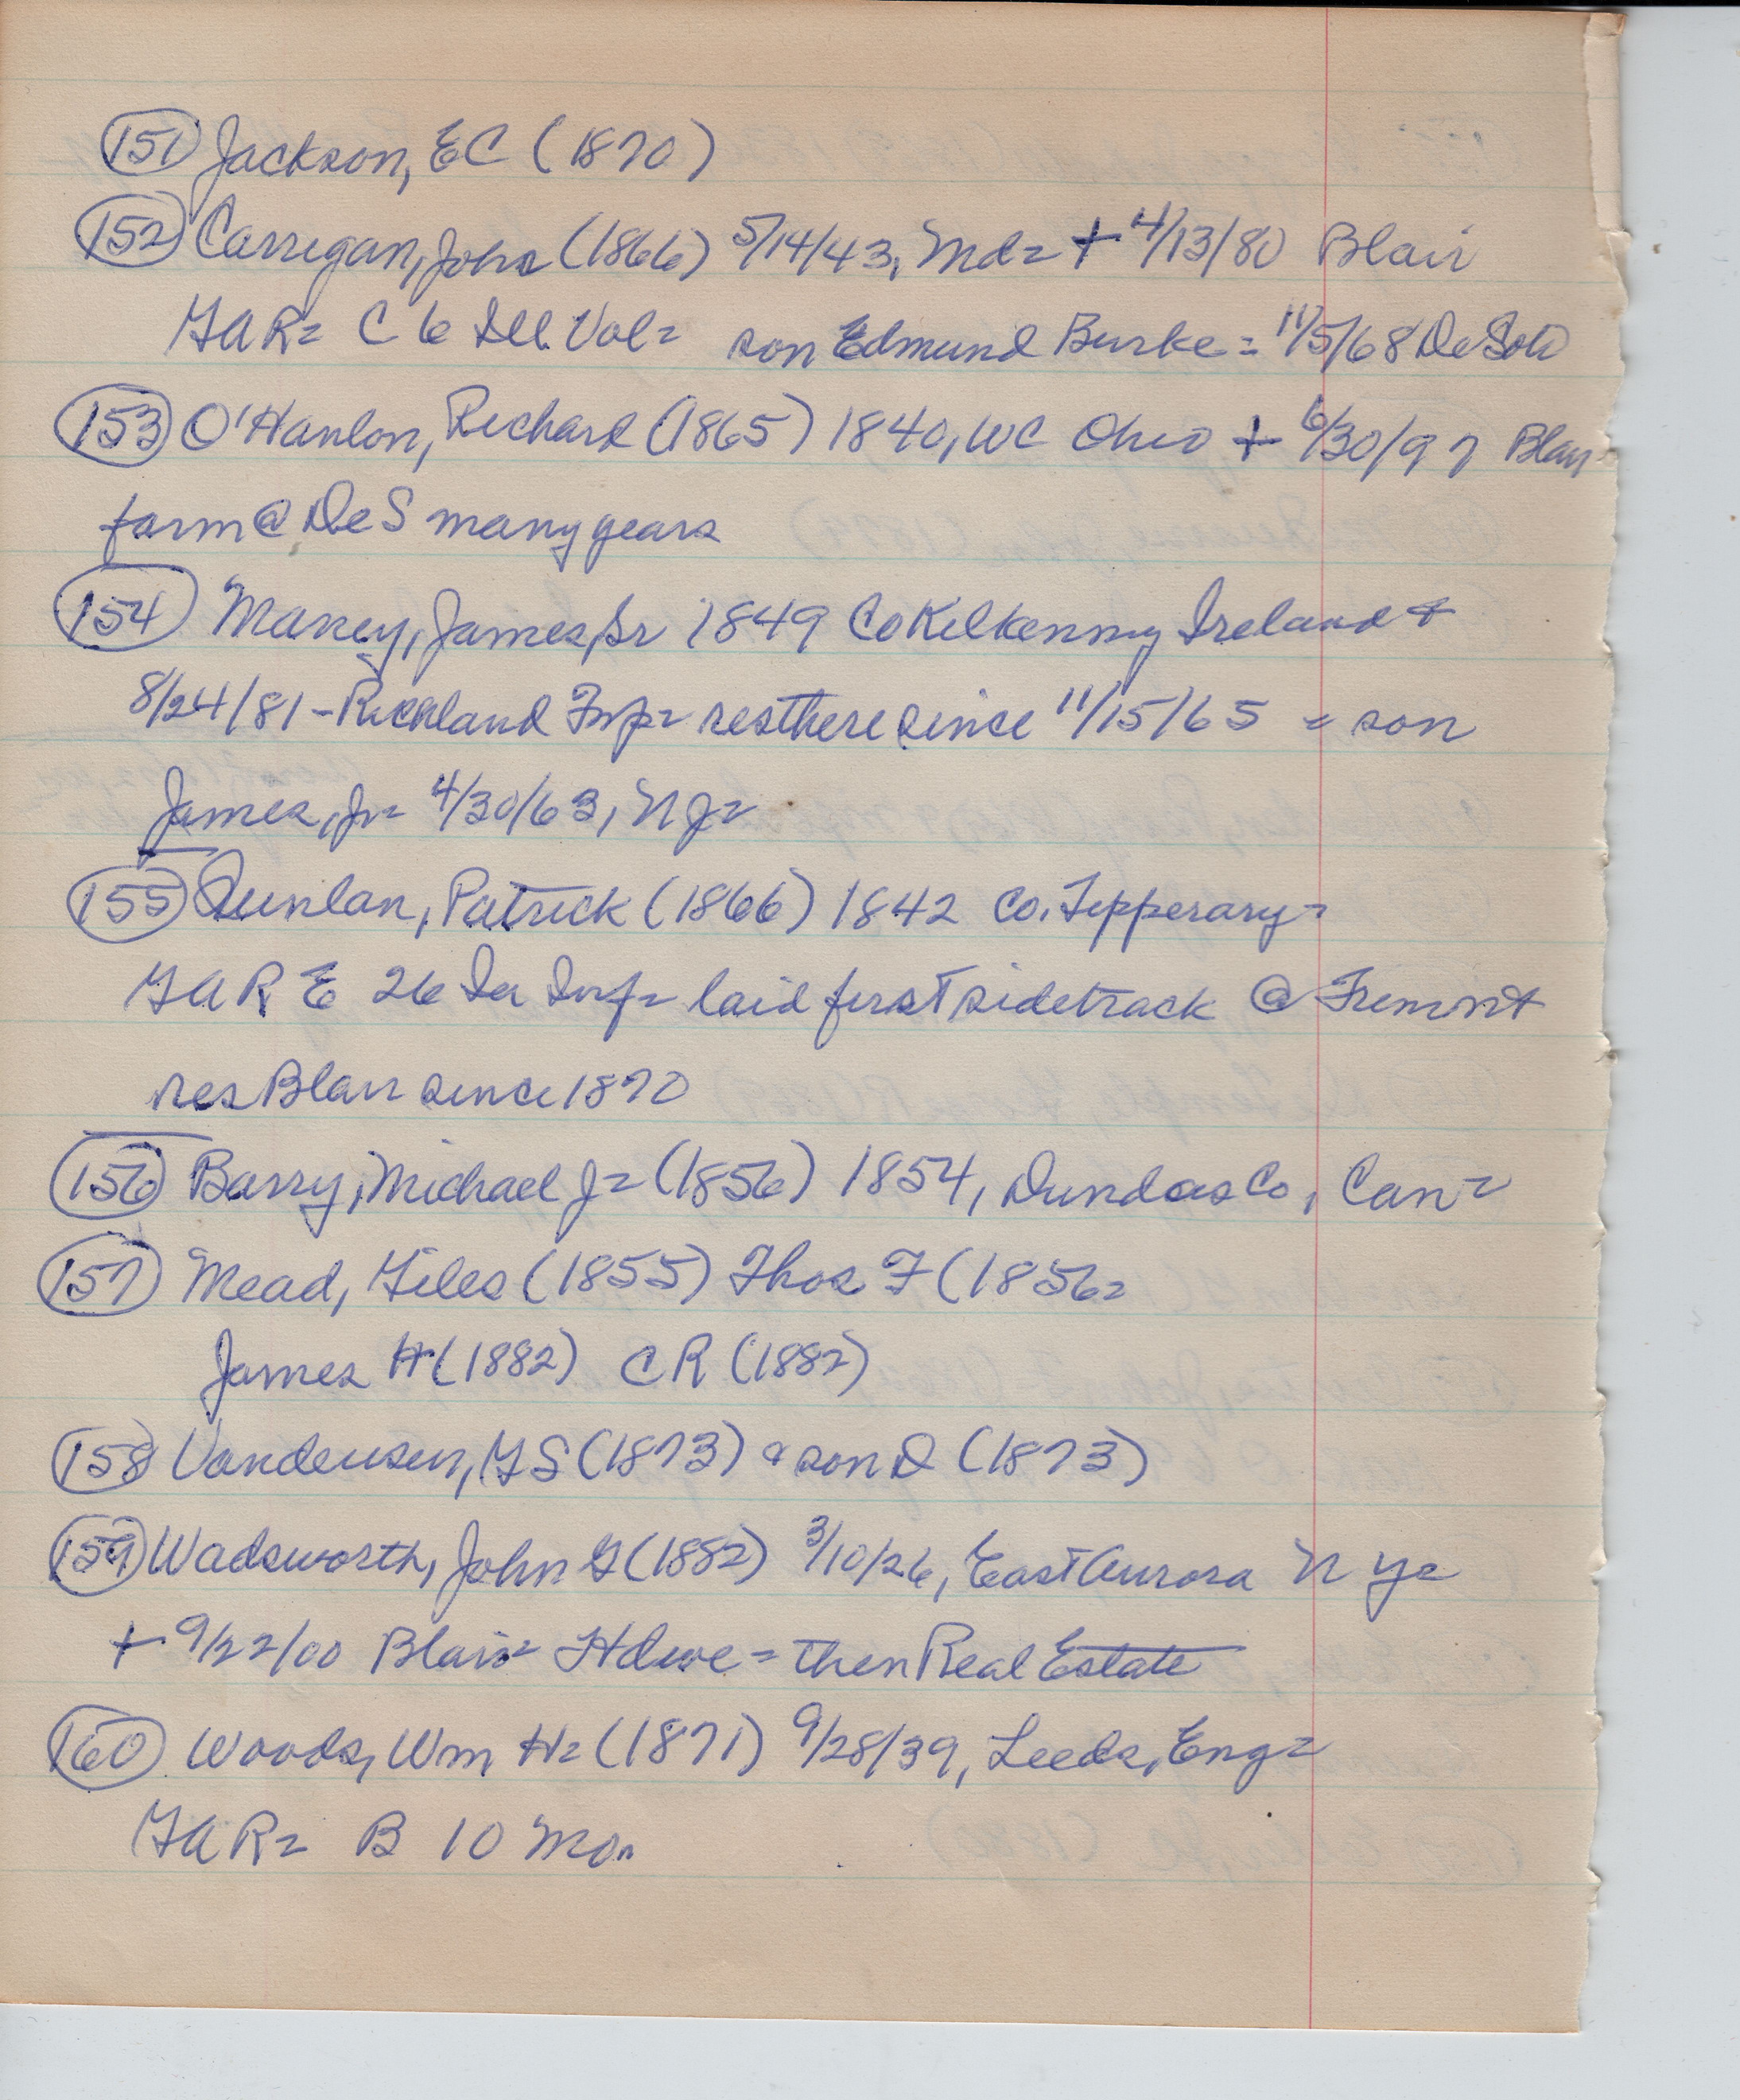 151 Jackson, EC (1870)
152 Carrigan, John (1866) 5/14/43, Md= + 4/13/80 Blair
GAR= C 6 Ill. Vol= son Edmund Burke = 11/5/68 DeSoto
153 O'Hanlon, Richard (1865) 1840, WC Ohio + 6/30/97 Blair
farm @ DeS many years
154 James, Sr 1849 Co Kilkenny Ireland +
8/24/81 - Richland Twp= res there since 11/15/65 = son
James, Jr= 4/30/63, NJ=
155 Quinlan, Patrick (1866) 1842 Co. Tipperary=
GAR E 26 Inf= laid first sidetrack @ Fremont
res Blair since 1870
156 Barry, Michael J= (1856) 1854, Dundas Co, Can=
157 Mead, Giles (1855) Thos F (1856=
James H (1882) CR (1882)
158 Vandeusen, GS (1873) & son D (1873)
159 Wadsworth, John G (1882) 3/10/26, East Aurora NY=
+ 9/22/00 Blair= Hdwe = then Real Estate
160 Woods, Wm H= (1871) 9/28/39, Leeds, Eng=
GAR= B 10 Mo.